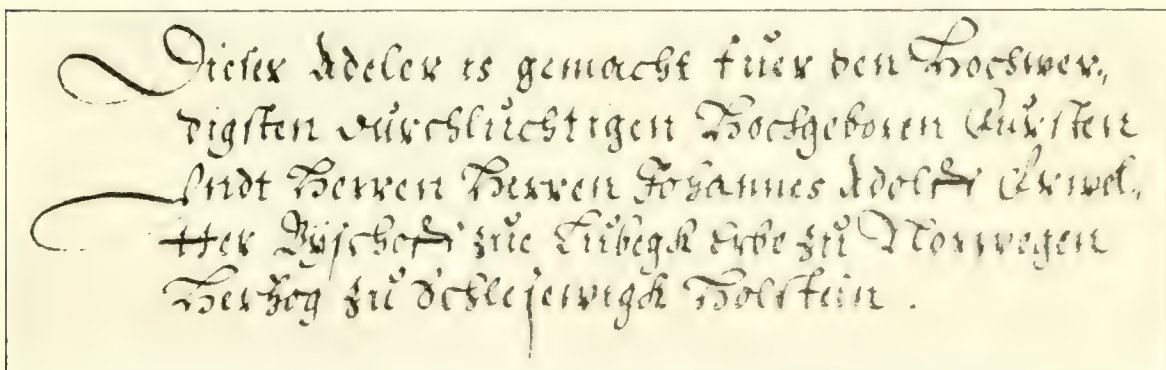 Dieser Adeler is gemacht fuer den Hochwer„
digsten durchluchtigen Hochgeboren Fürsten
Undt Herren Herren Johannes Adolff Erwel„
tter Byschoff zue Lübegk Erbe zu Norwegen
Herzog zu Schlesewigk Holstein .